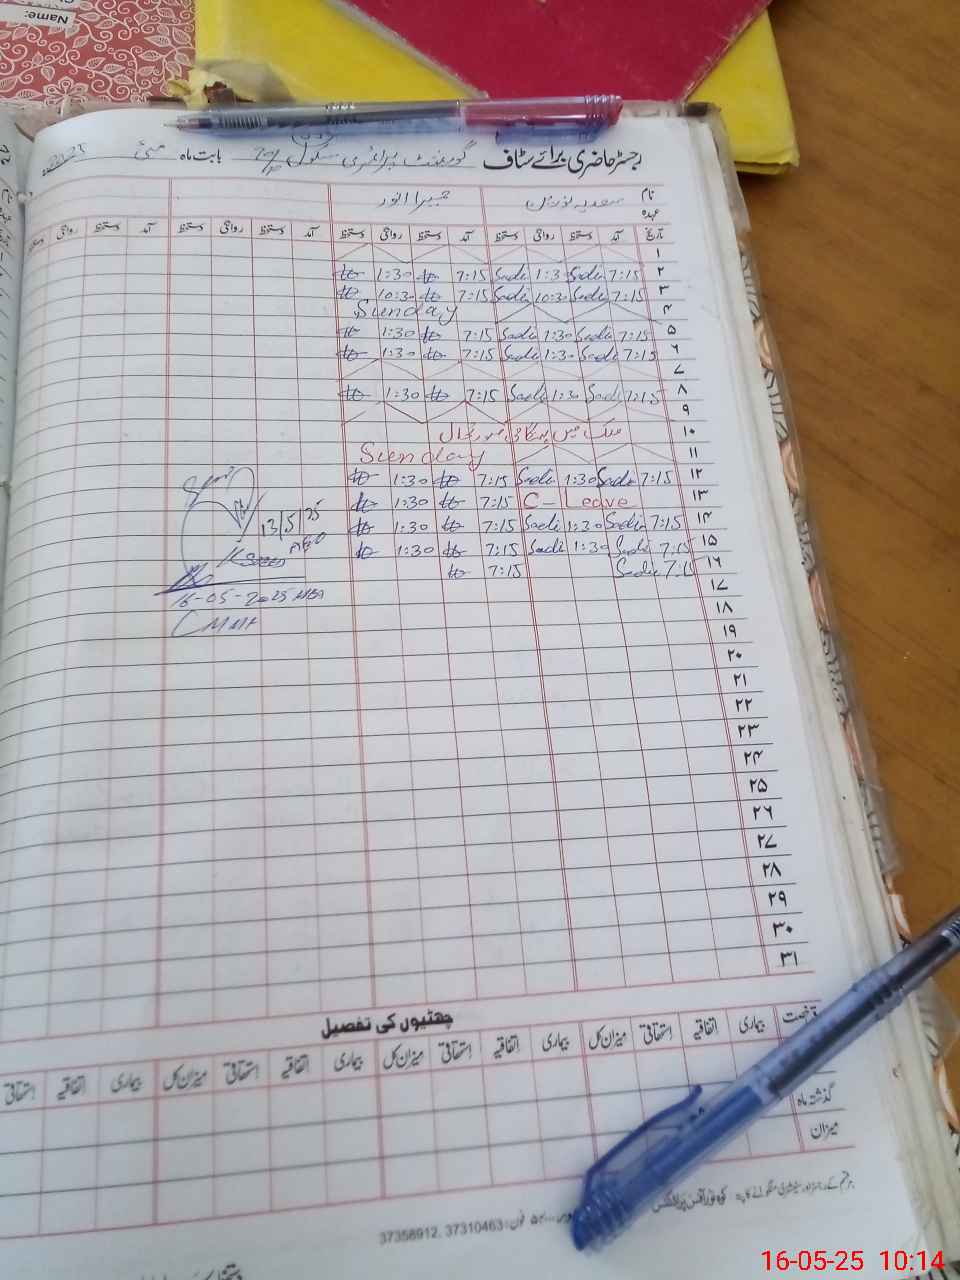 Name:
رجسٹر حاضری برائے سٹاف گورنمنٹ پرائمری سکول بابت ماہ مئی 2025
نام سعدیہ
عہدہ
تاریخ آمد دستخط روانگی دستخط آمد دستخط روانگی دستخط آمد دستخط روانگی دستخط آمد دستخط روانگی
۱
۲ 7:15 Sadi 1:3 Sadi 7:15 1:30
۳ 7:15 Sadi 10:30 Sadi 7:15 10:30
۴ Sunday
۵ 7:15 Sadi 1:30 Sadi 7:15 1:30
۶ 7:15 Sadi 1:30 Sadi 7:15 1:30
۷
۸ 7:15 Sadi 1:30 Sadi 7:15 1:30
۹
۱۰ ملک میں ہنگامی صورتحال
۱۱ Sunday
۱۲ 7:15 Sadi 1:30 Sadi 7:15 1:30
۱۳ C-Leave 7:15 1:30
۱۴ 7:15 Sadi 1:30 Sadi 7:15 1:30
۱۵ 7:15 Sadi 1:30 Sadi 7:15 1:30
۱۶ 7:15 Sadi 7:15
13/5/25
AEO
16-05-2025
۱۷
۱۸
۱۹
۲۰
۲۱
۲۲
۲۳
۲۴
۲۵
۲۶
۲۷
۲۸
۲۹
۳۰
۳۱
چھٹیوں کی تفصیل
رخصت بیماری اتفاقیہ استحقاقی میزان کل بیماری اتفاقیہ استحقاقی میزان کل بیماری اتفاقیہ استحقاقی میزان کل بیماری اتفاقیہ استحقاقی
گذشتہ ماہ
میزان
فون: 37310463, 37358912
16-05-25 10:14